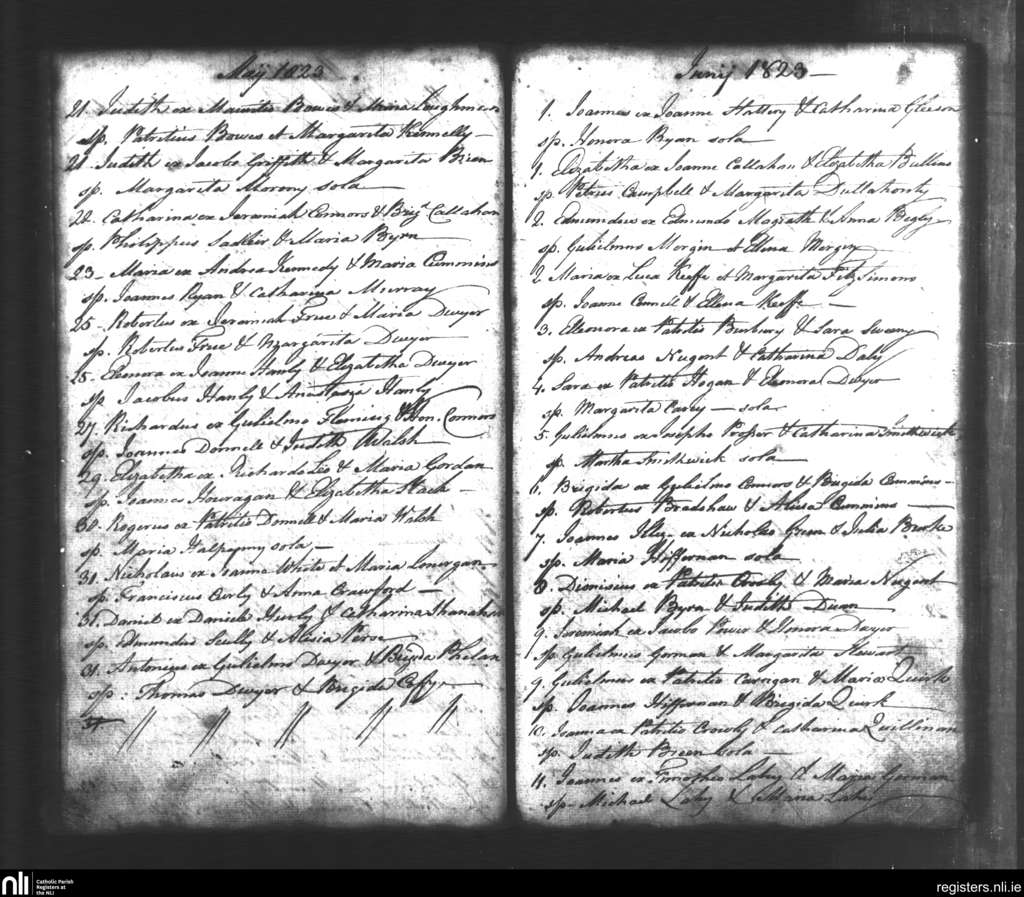 Maij 1823
21. Judith ex Mauritio Bowes & Maria Loughnan
sp. Patritius Bowes et Margarita Kennelly
21. Judith ex Jacobo Griffith & Margarita Brien
sp. Margarita Morony sola
22. Catharina ex Jeremiah Connors & Brigd. Callahan
sp. Philippus Sadlier & Maria Byrn
23 - Maria ex Andrea Kennedy & Maria Cummins
sp. Joannes Ryan & Catharina Murray
25 - Robertus ex Jeremiah Free & Maria Dwyer
sp. Robertus Free & Margarita Dwyer
25 - Elenora ex Joanne Hanly & Elizabetha Dwyer
sp Jacobus Hanly & Anastasia Hanly
27. Richardus ex Gulielmo Fleming & Hon. Connors
sp. Joannes Donnell & Judith Walsh
29. Elizabetha ex Richardo Leo & Maria Gordan
sp. Joannes Houragan & Elizabetha Stack
30. Rogerus ex Patritio Donnell & Maria Walsh
sp. Maria Halpenny sola
31. Nicholaus ex Joanne White et Maria Lonergan
sp. Franciscus Curly & Anna Crawford
31. Daniel ex Daniele Hurly & Catharina Shanahan
sp. Edmundus Scully & Alesia Perse
31. Antonius ex Gulielmo Dwyer & Brigida Phelan
sp: Thomas Dwyer & Brigida Coffy
Junij 1823
1. Joannes ex Joanne Hattory & Catharina Gleeson
sp. Honora Ryan sola
1. Elizabetha ex Joanne Callahan & Elizabetha Bullins
sp. Petrus Campbell & Margarita Dullahonty
2. Edmundus ex Edmundo Magrath & Anna Begly
sp. Gulielmus Morgin et Ellena Morgin
2. Maria ex Luca Keeffe et Margarita Fitz Simons
sp. Joanne Connell & Ellena Keeffe
3. Elleonora ex Patritio Burbury & Sara Sweeny
sp. Andreas Nugent & Catharina Daly
4. Sara ex Patritio Hogan & Elenora Dwyer
sp. Margarita Carey - sola
5. Gulielmus ex Josepho Proper & Catharina Smithwick
sp. Martha Smithwick sola
6. Brigida ex Gulielmo Connors & Brigida Cummins
sp. Robertus Bradshaw & Alicia Cummins
7. Joannes Illeg. ex Nicholao Green & Julia Burke
sp. Maria Heffernan sola
8. Dionisius ex Patritio Crowly & Maria Nugent
sp. Michael Byrn & Judith Dunn
9. Jeremiah ex Jacobo Power & Honora Dwyer
sp. Gulielmus Gorman & Margarita Stewart
9. Gulielmus ex Patritio Carrigan & Maria Quirk
sp. Joannes Heffernan & Brigida Quirk
10. Joanna ex Patritio Crowly & Catharina Quillinan
sp. Judith Breen Sola
11. Joannes ex Timotheo Lahy & Maria Gorman
sp. Michael Lahy & Maria Lahy
nli
Catholic Parish
Registers at
the NLI
registers.nli.ie